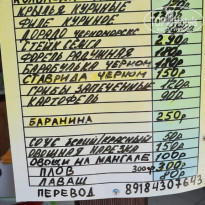 КРЫЛЬЯ КУРИНЫЕ
ФИЛЕ КУРИНОЕ
ДОРАДО ЧЕРНОМОРСК
СТЕЙК СЁМГА
ФОРЕЛЬ РАДУЖНАЯ
БАРАБУЛЬКА ЧЕРНОМ 180р
СТАВРИДА ЧЕРНОМ 150р
ГРИБЫ ЗАПЕЧЕННЫЕ
КАРТОФЕЛЬ
БАРАНИНА 250р
СОУС БЕЛЫЙ/КРАСНЫЙ 50р
ОВОЩНАЯ НАРЕЗКА 150р
ОВОЩИ НА МАНГАЛЕ 100р
ПЛОВ 300гр
ЛАВАШ
ПЕРЕВОД 89184307643